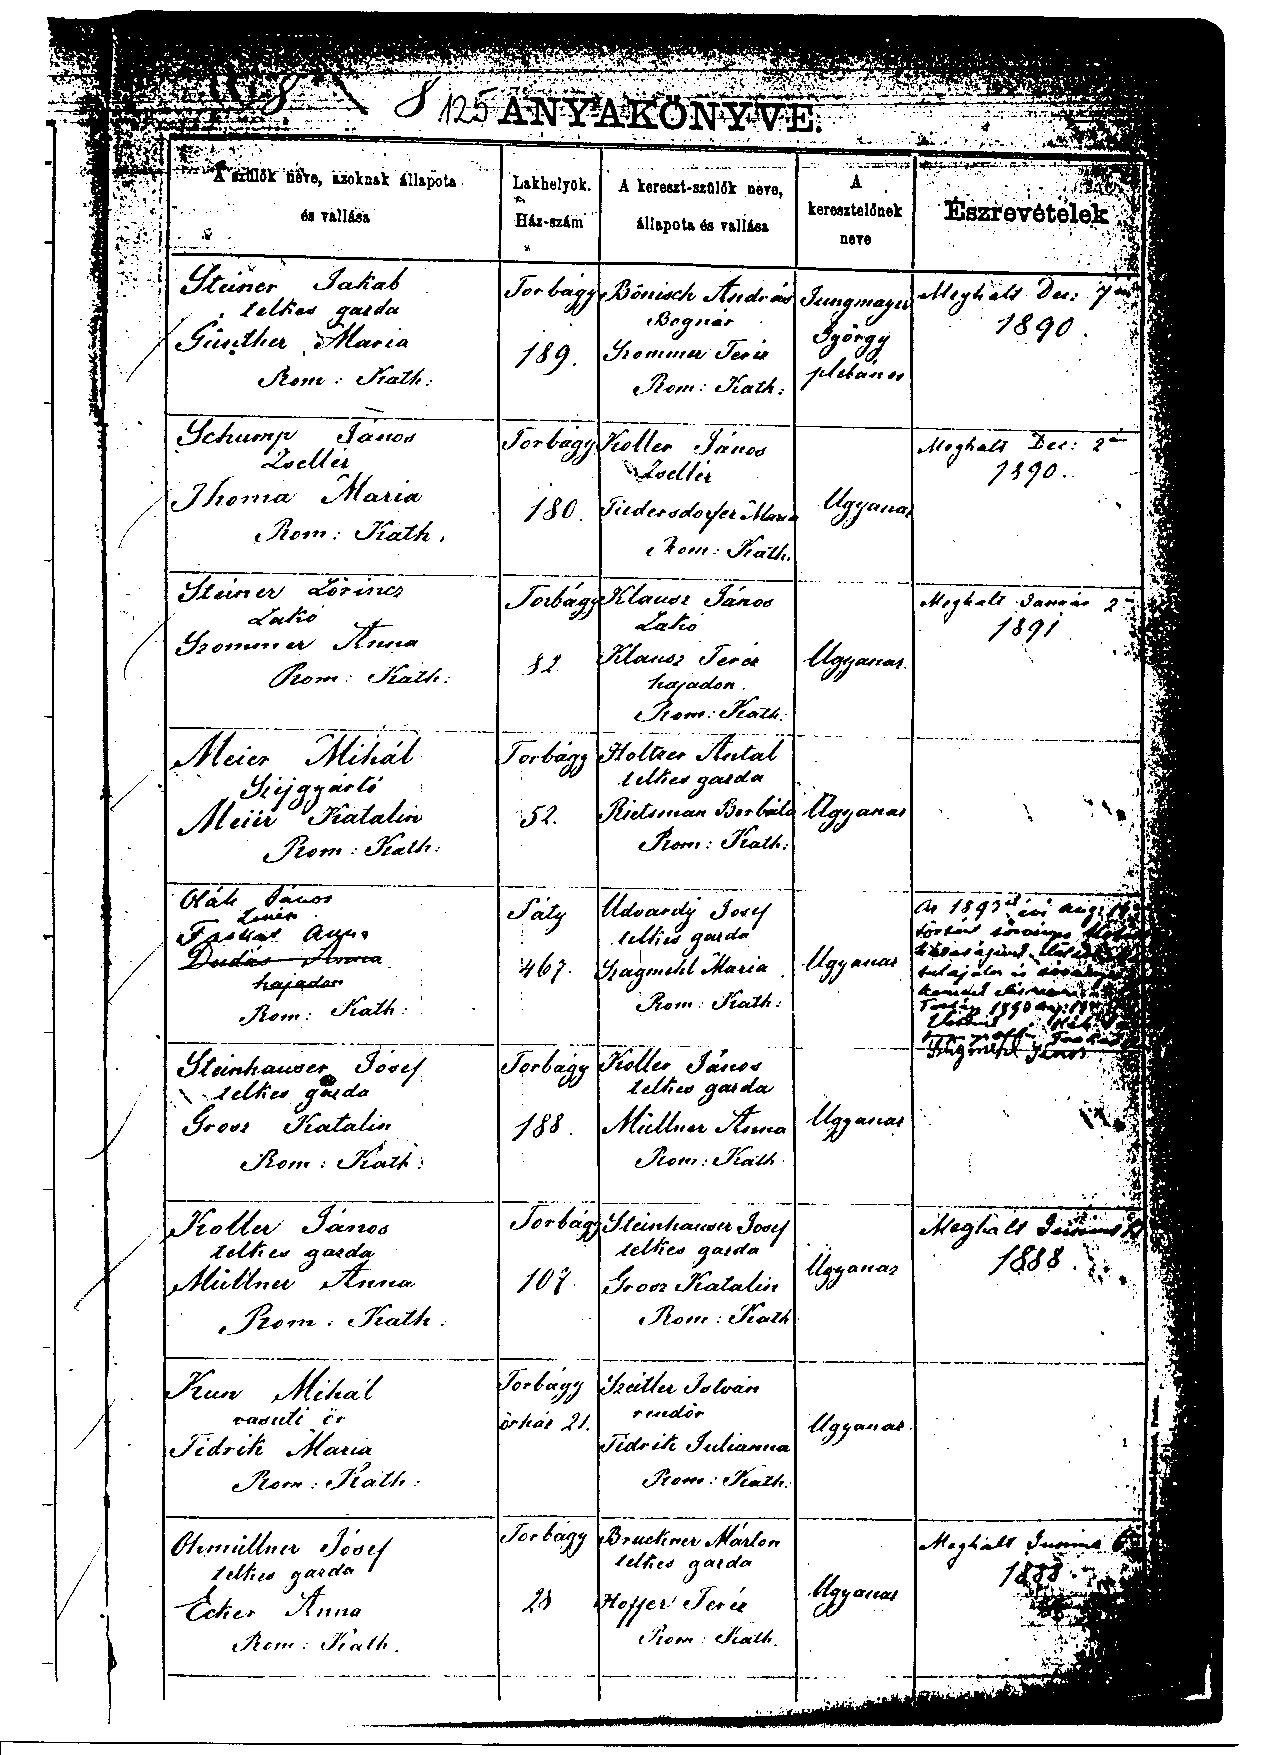 8 125 ANYAKÖNYVE.
A szülők neve, azoknak állapota
és vallása
Lakhelyök.
Ház-szám
A kereszt-szülők neve,
állapota és vallása
A
keresztelőnek
neve
Észrevételek
Steiner Jakab
telkes gazda
Günther Maria
Rom: Kath:
Torbágy
189.
Bönisch András
Bognár
Grommer Teréz
Rom: Kath:
Jungmayer
György
plébános
Meghalt Dec: 7én
1890.
Schump János
Zsellér
Thoma Maria
Rom: Kath.
Torbágy
180.
Koller János
Zsellér
Tiedersdorfer Maria
Rom: Kath.
Ugyanaz
Meghalt Dec: 2án
1890.
Steiner Lőrincz
Lakó
Grommer Anna
Rom: Kath:
Torbágy
82
Klausz János
Lakó
Klausz Teréz
hajadon.
Rom: Kath:
Ugyanaz.
Meghalt Január 2án
1891
Meier Mihál
Szijgyártó
Meier Katalin
Rom: Kath:
Torbágy
52.
Holtzer Antal
telkes gazda
Rietsman Borbála
Rom: Kath:
Ugyanaz
Oláh János
Farkas Anna
Dudás Anna
hajadon
Rom: Kath:
Sály
467.
Udvardy Josef
telkes gazda
Szagmehl Maria
Rom: Kath:
Ugyanaz
Az 1893 évi aug:
János
Steinhauser József
telkes gazda
Grosz Katalin
Rom: Kath:
Torbágy
188.
Koller János
telkes gazda
Müllner Anna
Rom: Kath
Ugyanaz
Koller János
telkes gazda
Müllner Anna
Rom: Kath.
Torbágy
107
Steinhauser Josef
telkes gazda
Grosz Katalin
Rom: Kath
Ugyanaz
Meghalt Junius
1888.
Kun Mihál
vasuti őr
Fidrik Maria
Rom: Kath:
Torbágy
őrház 21.
Szeitler István
rendőr
Fidrik Julianna
Rom: Kath:
Ugyanaz.
Ohmüllner József
telkes gazda
Ecker Anna
Rom: Kath.
Torbágy
28
Bruckner Márton
telkes gazda
Hoffer Teréz
Rom: Kath.
Ugyanaz
Meghalt Junius 6
1888.